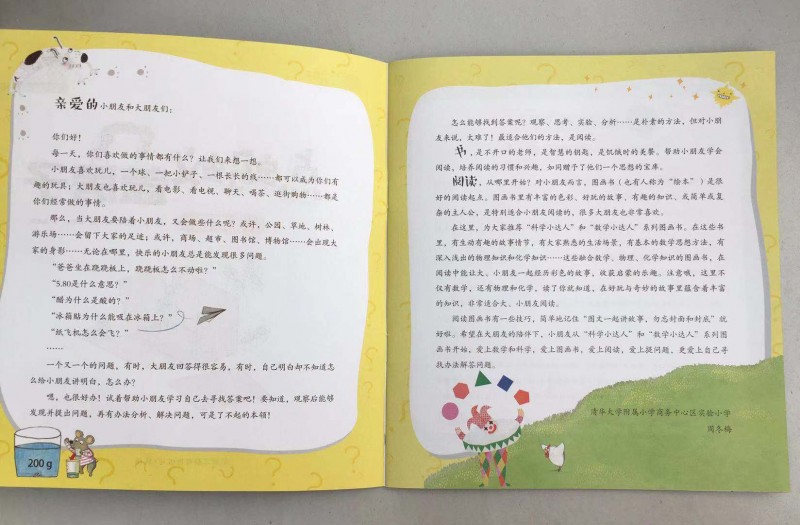 亲爱的小朋友和大朋友们：
你们好！
每一天，你们喜欢做的事情都有什么？让我们来想一想。
小朋友喜欢玩儿，一个球、一把小铲子、一根长长的线……都可以成为你们有
趣的玩具；大朋友也喜欢玩儿，看电影、看电视、聊天、喝茶、逛街购物……都是
你们经常做的事情。
那么，当大朋友要陪着小朋友，又会做些什么呢？或许，公园、草地、树林、
游乐场……会留下大家的足迹；或许，商场、超市、图书馆、博物馆……会出现大
家的身影……无论在哪里，快乐的小朋友总是能发现很多问题。
“爸爸坐在跷跷板上，跷跷板怎么不动啦？”
“5.80是什么意思？”
“醋为什么是酸的？”
“冰箱贴为什么能吸在冰箱上？”
“纸飞机怎么会飞？”
……
一个又一个的问题，有时，大朋友回答得很容易，有时，自己明白却不知道怎
么给小朋友讲明白，怎么办？
嗯，也很好办！试着帮助小朋友学习自己去寻找答案吧！要知道，观察后能够
发现并提出问题，再有办法分析、解决问题，可是了不起的本领！
200 g
怎么能够找到答案呢？观察、思考、实验、分析……是朴素的方法，但对小朋
友来说，太难了！最适合他们的方法，是阅读。
书，是不开口的老师，是智慧的钥匙，是饥饿时的美餐。帮助小朋友学会
阅读，培养阅读的习惯和兴趣，如同赠予了他们一个思想的宝库。
阅读，从哪里开始？对小朋友而言，图画书（也有人称为“绘本”）是很
好的阅读起点。图画书里有丰富的色彩、好玩的故事、有趣的知识、或简单或复
杂的主人公，是特别适合小朋友阅读的，很多大朋友也非常喜欢。
在这里，为大家推荐“科学小达人”和“数学小达人”系列图画书。在这些书
里，有生动有趣的故事情节，有大家熟悉的生活场景，有基本的数学思想方法，有
深入浅出的物理知识和化学知识……这些融合数学、物理、化学知识的图画书，在
阅读中能让大、小朋友一起经历彩色的故事，收获启蒙的乐趣。注意哦，这里不
仅有数学，还有物理和化学，读了你就知道，在好玩与奇妙的故事里蕴含着丰富
的知识，非常适合大、小朋友阅读。
阅读图画书有一些技巧，简单地记住“图文一起讲故事，勿忘封面和封底”就
好啦。希望在大朋友的陪伴下，小朋友从“科学小达人”和“数学小达人”系列图
画书开始，爱上数学和科学，爱上图画书，爱上阅读，爱上提问题，更爱上自己寻
找办法解答问题。
清华大学附属小学商务中心区实验小学
闻冬梅